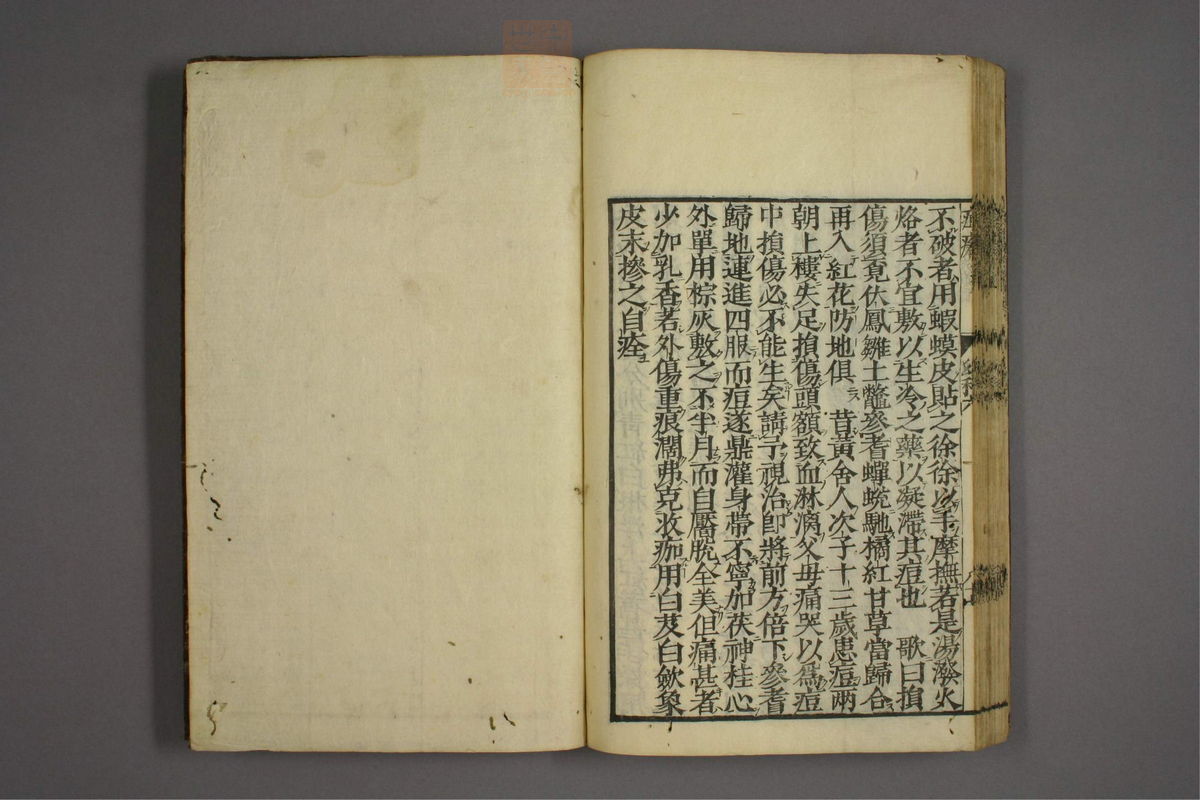 不破者用蝦蟆皮貼之徐徐以手摩撫若是湯潑火
烙者不宜敷以生冷之藥以凝滯其痘也　歌曰損
傷須覓伏鳳雛土鼈參耆蟬蛻馳橘紅甘草當歸合
再入紅花防地俱　昔黃舍人次子十三歲患痘兩
朝上樓失足損傷頭額致血淋漓父母痛哭以爲痘
中損傷必不能生矣請予視治卽將前方倍下參耆
歸地連進四服而痘遂鼎灌身帶不寧加茯神桂心
外單用棕灰敷之不半月而自靨脫全美但痛甚者
少加乳香若外傷重痕濶弗克收痂用白芨白歛象
皮末摻之自痊